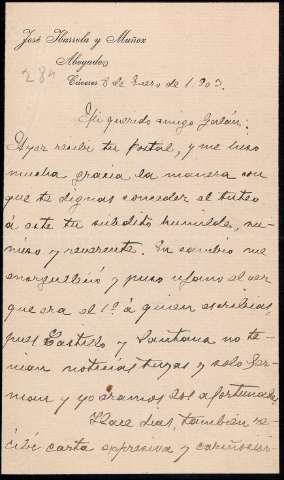 José Ibarrola y Muñoz
Abogado
284
Cáceres 8 de Enero de 1903.
Mi querido amigo Galán:
Ayer recibí tu postal, y me hizo
mucha gracia la manera con
que te dignas conceder el tuteo
á este tu subdito humilde, su-
miso y reverente. En cambio me
enorgulleció y puso ufano el ver
que era el 1º á quien escribias,
pues Castillo y Santana no te-
nian noticias tuyas y solo Ger-
man y yo eramos los afortunados.
Hace dias, tambien re-
cibí carta expresiva y cariñosa